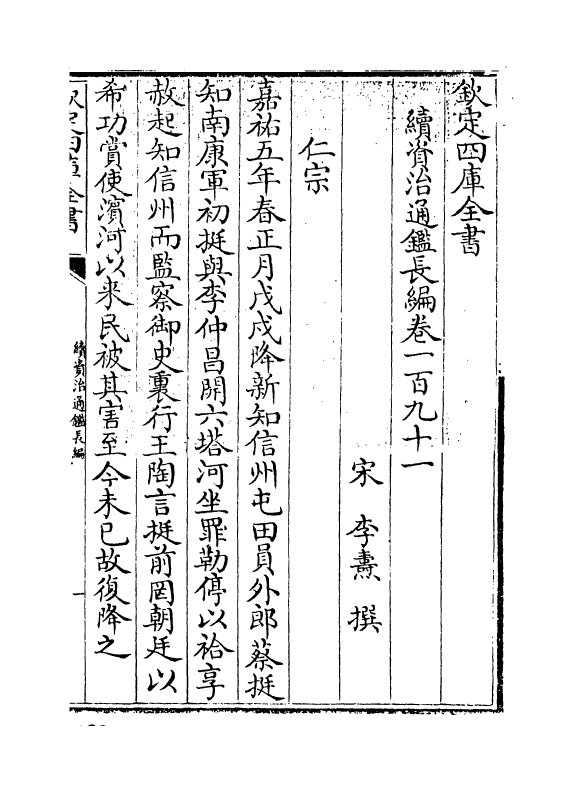 欽定四庫全書
續資治通鑑長編卷一百九十一
宋 李燾 撰
仁宗
嘉祐五年春正月戊戌降新知信州屯田員外郎蔡挺
知南康軍初挺與李仲昌開六塔河坐罪勒停以祫享
赦起知信州而監察御史裏行王陶言挺前罔朝廷以
希功賞使濵河以来民被其害至今未已故復降之
欽定四庫全書
續資治通鑑長編
一